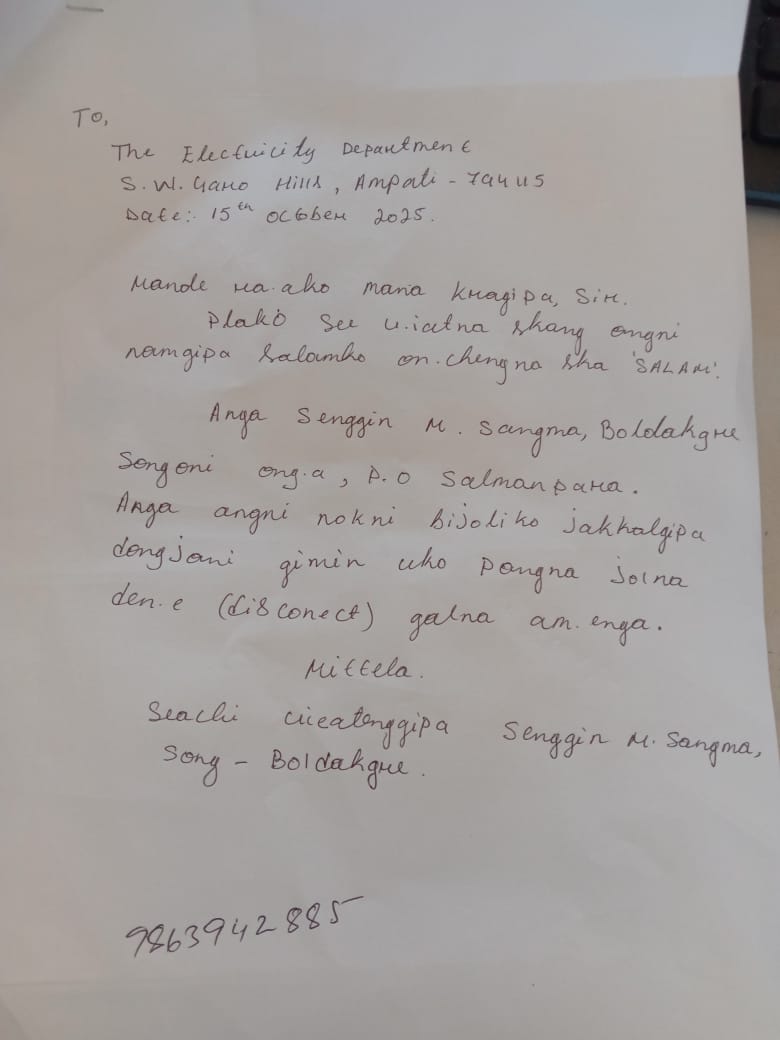 To,
The Electricity Department
S.W. Garo Hills, Ampati - 794115
Date:- 15th October 2025.
Mande ra.ako mana kragipa, Sir.
Plako see u.iatna skang angni
namgipa salamko on.chengna ska 'SALAM'.
Anga Senggin M. Sangma, Boldakgre
Songoni ong.a, P.O Salmanpara.
Anga angni nokni bijoliko jakkalgipa
dongjani gimin uko pangna jolna
den.e (disconect) galna am.enga.
Mittela.
Seachi uiatenggipa Senggin M. Sangma,
Song - Boldakgre.
9863942885